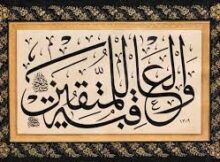 والعاقبة للمتقين